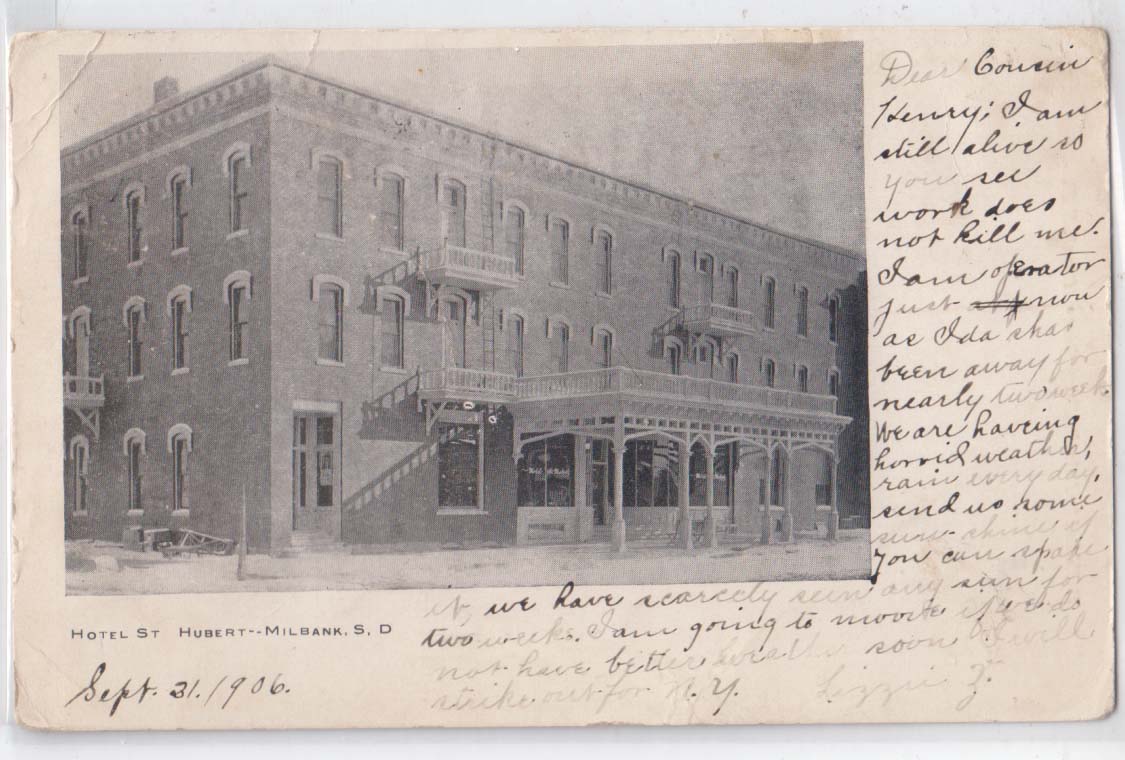 Dear Cousin
Henry; I am
still alive so
you see
work does
not kill me.
I am operator
just now
as Ida has
been away for
nearly two week.
We are haveing
horrid weather,
rain every day,
send us some
sun-shine if
you can spare
it, we have scarcely seen any sun for
two weeks. I am going to moove if we do
not have better weather soon I will
strike out for N.Y. Lizzie Z.
HOTEL ST HUBERT--MILBANK, S, D
Sept. 21. 1906.